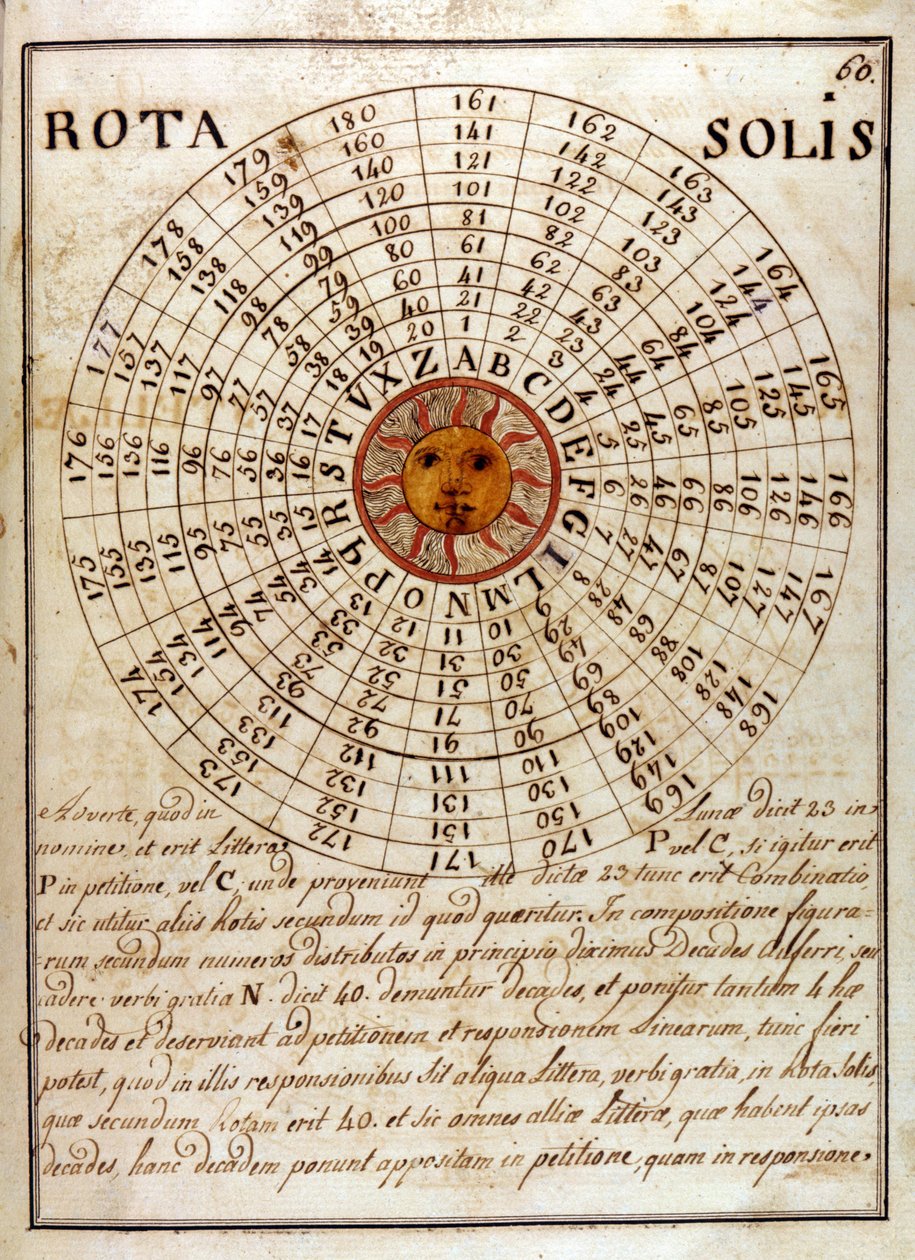 60.
ROTA SOLiS
161 162 163 164 165 166 167 168 169 170 171 172 173 174 175 176 177 178 179 180
141 142 143 144 145 146 147 148 149 150 151 152 153 154 155 156 157 158 159 160
121 122 123 124 125 126 127 128 129 130 131 132 133 134 135 136 137 138 139 140
101 102 103 104 105 106 107 108 109 110 111 112 113 114 115 116 117 118 119 120
81 82 83 84 85 86 87 88 89 90 91 92 93 94 95 96 97 98 99 100
61 62 63 64 65 66 67 68 69 70 71 72 73 74 75 76 77 78 79 80
41 42 43 44 45 46 47 48 49 50 51 52 53 54 55 56 57 58 59 60
21 22 23 24 25 26 27 28 29 30 31 32 33 34 35 36 37 38 39 40
1 2 3 4 5 6 7 8 9 10 11 12 13 14 15 16 17 18 19 20
A B C D E F G I L M N O P q R S T V X Z
Averte, quod in Lunæ dicit 23 in
nomine, et erit Littera P vel C, si igitur erit
P in petitione, vel C, unde proveniunt ille dictæ 23 tunc erit Combinatio,
et sic utitur aliis Rotis secundum id quod quæritur. In compositione figura=
=rum secundum numeros distributos in principio diximus Decades Auferri, seu
cadere verbi gratia N. dicit 40. demuntur decades, et ponitur tantum 4 hæ
decades et deserviant ad petitionem et responsionem Linearum, tunc fieri
potest, quod in illis responsionibus Sit aliqua Littera, verbi gratia, in Rota Solis,
quæ secundum Rotam erit 40. et sic omnes alliæ Litteræ, quæ habent ipsas
decades, hanc decadem ponunt appositam in petitione, quam in responsione,